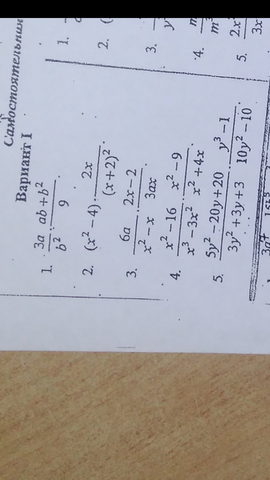 Самостоятельная
Вариант I
1. \frac{3a}{b^2} \cdot \frac{ab+b^2}{9}.
2. (x^2-4) \cdot \frac{2x}{(x+2)^2}.
3. \frac{6a}{x^2-x} \cdot \frac{2x-2}{3ax}.
4. \frac{x^2-16}{x^3-3x^2} \cdot \frac{x^2-9}{x^2+4x}.
5. \frac{5y^2-20y+20}{3y^2+3y+3} \cdot \frac{y^3-1}{10y^2-10}.
1.
2. (
3.
4.
5. \frac{2x}{3x}